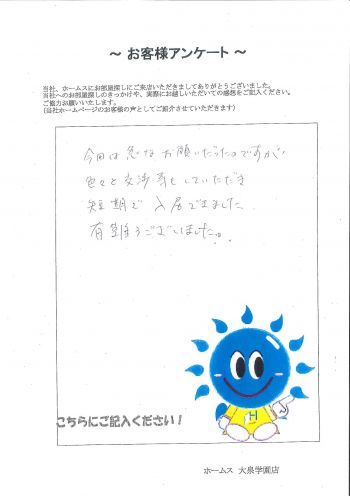 ～ お客様アンケート ～
当社、ホームスにお部屋探しにご来店いただきましてありがとうございました。
当社へのお部屋探しのきっかけや、実際にお越しいただいての感想をご記入ください。
ご協力お願いいたします。
(当社ホームページのお客様の声としてご紹介させていただきます)
今回は急なお願いだったのですが
色々と交渉等もしていただき
短期で入居できました
有難うございました。
H
こちらにご記入ください！
ホームス 大泉学園店